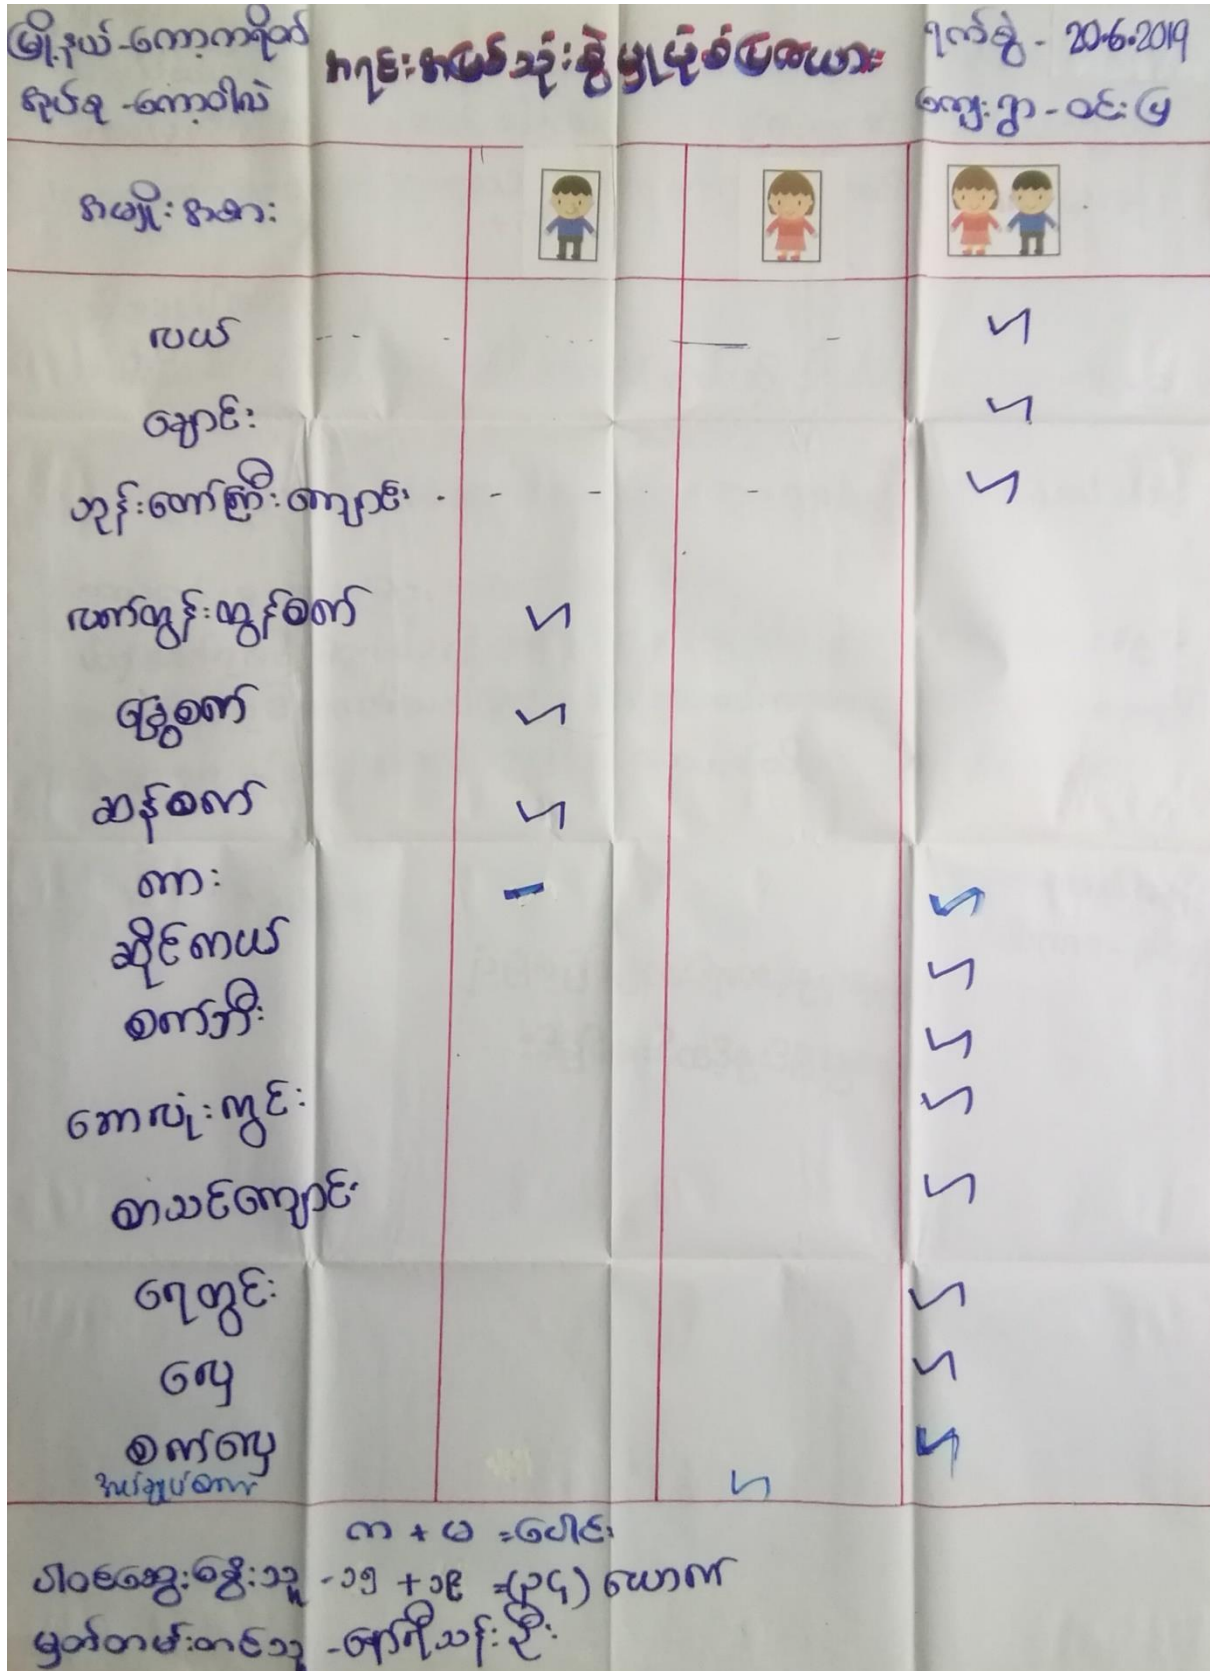 မြို့နယ် - ကော့ကရိတ်
အုပ်စု - ကော့ဝါလဲ
အရင်းအမြစ်သုံးစွဲမှုပုံစံပြဇယား
ရက်စွဲ - 20.6.2019
ကျေးရွာ - ဝင်းမြ
အမျိုးအစား
လယ်
ချောင်း
ဘုန်းတော်ကြီးကျောင်း
လက်တွန်းထွန်စက်
ခြွေစက်
ဆန်စက်
ကား
ဆိုင်ကယ်
စက်ဘီး
ဘောလုံးကွင်း
စာသင်ကျောင်း
ရေတွင်း
လှေ
စက်လှေ
အပ်ချုပ်စက်
က + မ = ပေါင်း
ပါဝင်ဆွေးနွေးသူ - ၁၅ + ၁၉ = (၃၄) ယောက်
မှတ်တမ်းတင်သူ - နော်ရီသန်းဦး